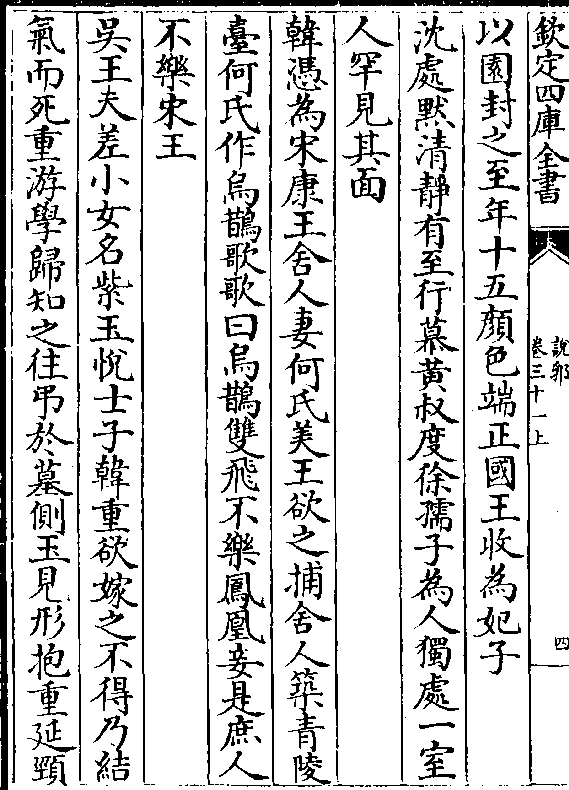 欽定四庫全書
說郛
卷三十一上
四
以園封之至年十五顏色端正國王收為妃子
沈處默清靜有至行慕黃叔度徐孺子為人獨處一室
人罕見其面
韓憑為宋康王舍人妻何氏美王欲之捕舍人築青陵
臺何氏作烏鵲歌歌曰烏鵲雙飛不樂鳳凰妾是庶人
不樂宋王
吳王夫差小女名紫玉悅士子韓重欲嫁之不得乃結
氣而死重游學歸知之往弔於墓側玉見形抱重延頸